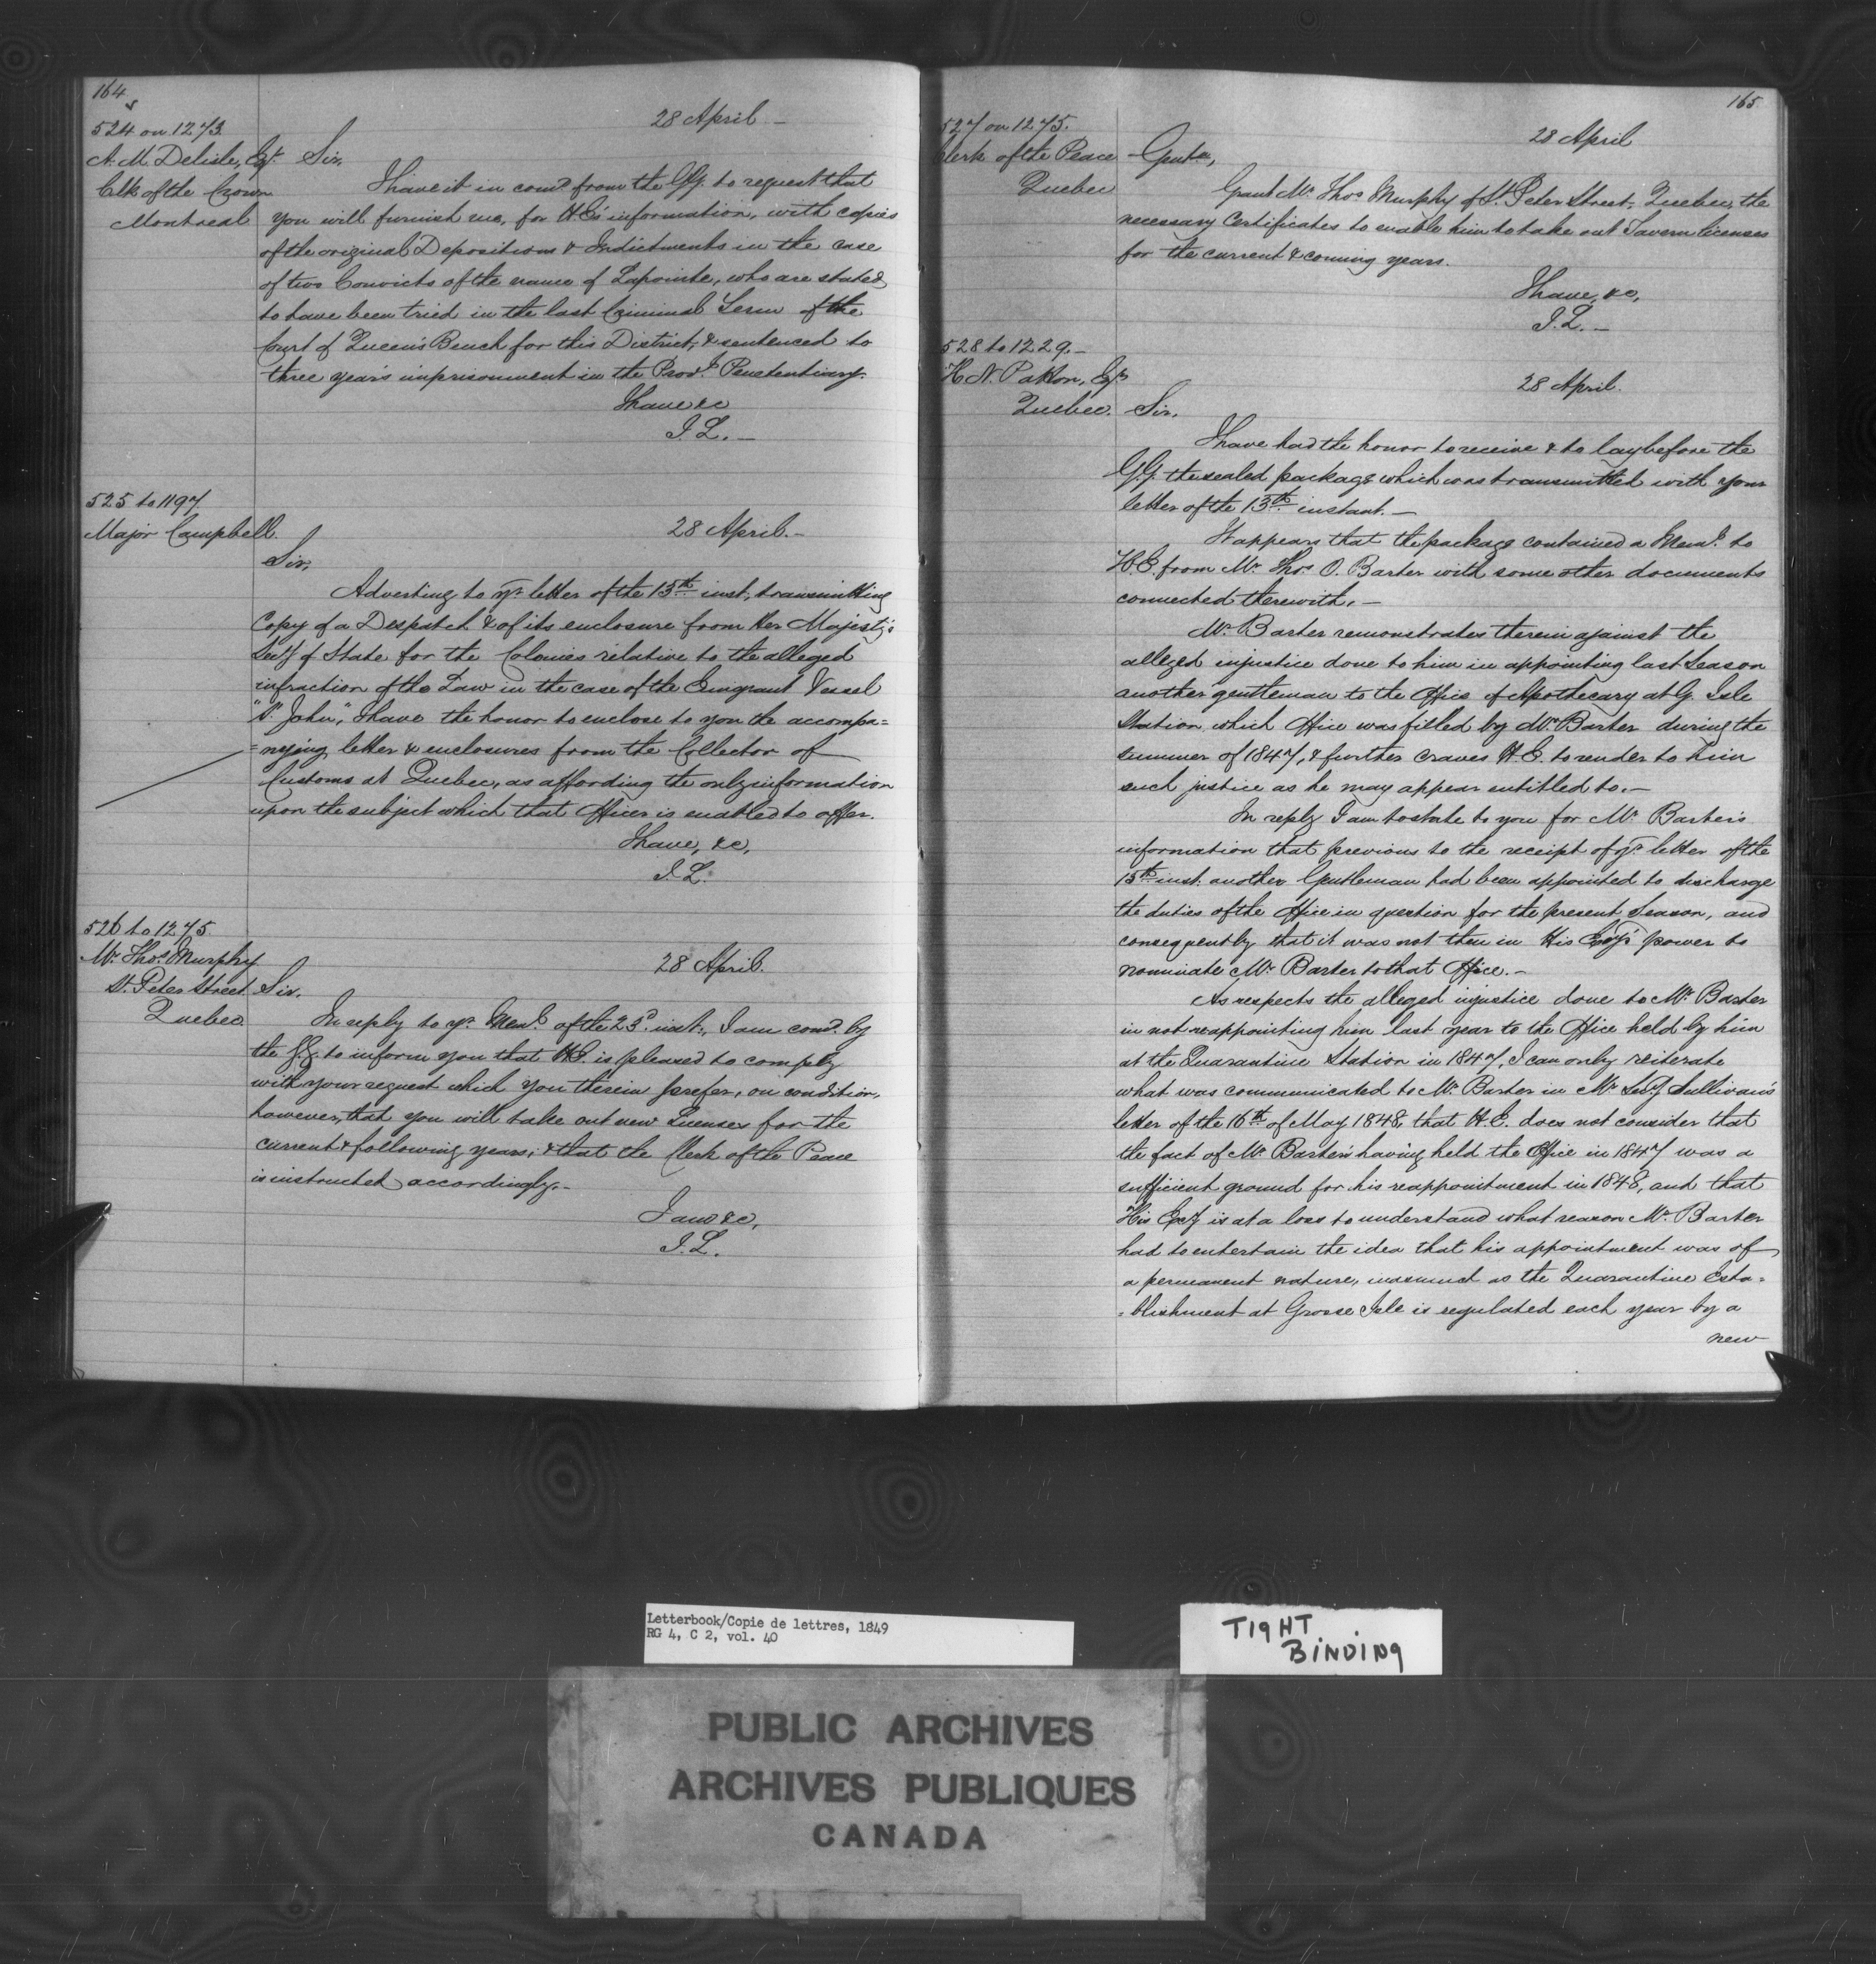 164
524 on 1273.
A. M. Delisle, Esqr.
Clk of the Crown
Montreal
28 April –
Sir,
I have it in comd. from the G.G. to request that
you will furnish me, for H.E's information, with copies
of the original Depositions & Indictments in the case
of two Convicts of the name of Lapointe, who are stated
to have been tried in the last Criminal Term of the
Court of Queen's Bench for this District, & sentenced to
three years imprisonment in the Provl. Penetentiary.
I have &c
J. L. –
525 to 1197
Major Campbell.
28 April. –
Sir,
Adverting to yr. letter of the 15th inst., transmitting
Copy of a Despatch & of its enclosure from Her Majesty's
Secy. of State for the Colonies relative to the alleged
infraction of the Law in the case of the Emigrant Vessel
"St. John", I have the honor to enclose to you the accompa=
=nying letter & enclosures from the Collector of
Customs at Quebec, as affording the only information
upon the subject which that Officer is enabled to offer.
I have, &c,
J. L.
526 to 1275
Mr. Thos. Murphy
St. Peter Street
Quebec.
28 April.
Sir.
In reply to yr. Meml. of the 23d. inst., I am comd. by
the G.G. to inform you that H.E. is pleased to comply
with your request which you therein prefer, on condition,
however, that you will take out new Licenses for the
current & following years; & that the Clerk of the Peace
is instructed accordingly. –
I am &c,
J. L.
165
527 on 1275.
Clerk of the Peace
Quebec
28 April
Gents,
Grant Mr. Thos. Murphy of St. Peter Street, Quebec, the
necessary Certificates to enable him to take out Tavern licenses
for the current & coming years.
I have, &c,
J. L. –
528 to 1229. –
H. N. Patton, Esqr.
Quebec.
28 April.
Sir.
I have had the honor to receive & to lay before the
G.G. the sealed package which was transmitted with your
letter of the 13th instant. –
It appears that the package contained a Meml. to
H.E. from Mr. Thos. O. Barter with some other documents
connected therewith. –
Mr. Barter remonstrates therein against the
alleged injustice done to him in appointing last Season
another gentleman to the Office of Apothecary at G. Isle
Station which Office was filled by Mr. Barter during the
summer of 1847, & further craves H.E. to render to him
such justice as he may appear entitled to. –
In reply I am to state to you for Mr. Barter's
information that previous to the receipt of yr. letter of the
13th inst. another Gentleman had been appointed to discharge
the duties of the Office in question for the present Season, and
consequently that it was not then in His Excy's power to
nominate Mr. Barter to that Office. –
As respects the alleged injustice done to Mr. Barter
in not reappointing him last year to the Office held by him
at the Quarantine Station in 1847, I can only reiterate
what was communicated to Mr. Barter in Mr. Secy. Sullivan's
letter of the 16th of May 1848, that H.E. does not consider that
the fact of Mr. Barter's having held the Office in 1847 was a
sufficient ground for his reappointment in 1848, and that
His Excy. is at a loss to understand what reason Mr. Barter
had to entertain the idea that his appointment was of
a permanent nature, inasmuch as the Quarantine Esta=
=blishment at Grosse Isle is regulated each year by a
new
Letterbook/Copie de lettres, 1849
RG 4, C 2, vol. 40
TIGHT
BINDING
PUBLIC ARCHIVES
ARCHIVES PUBLIQUES
CANADA